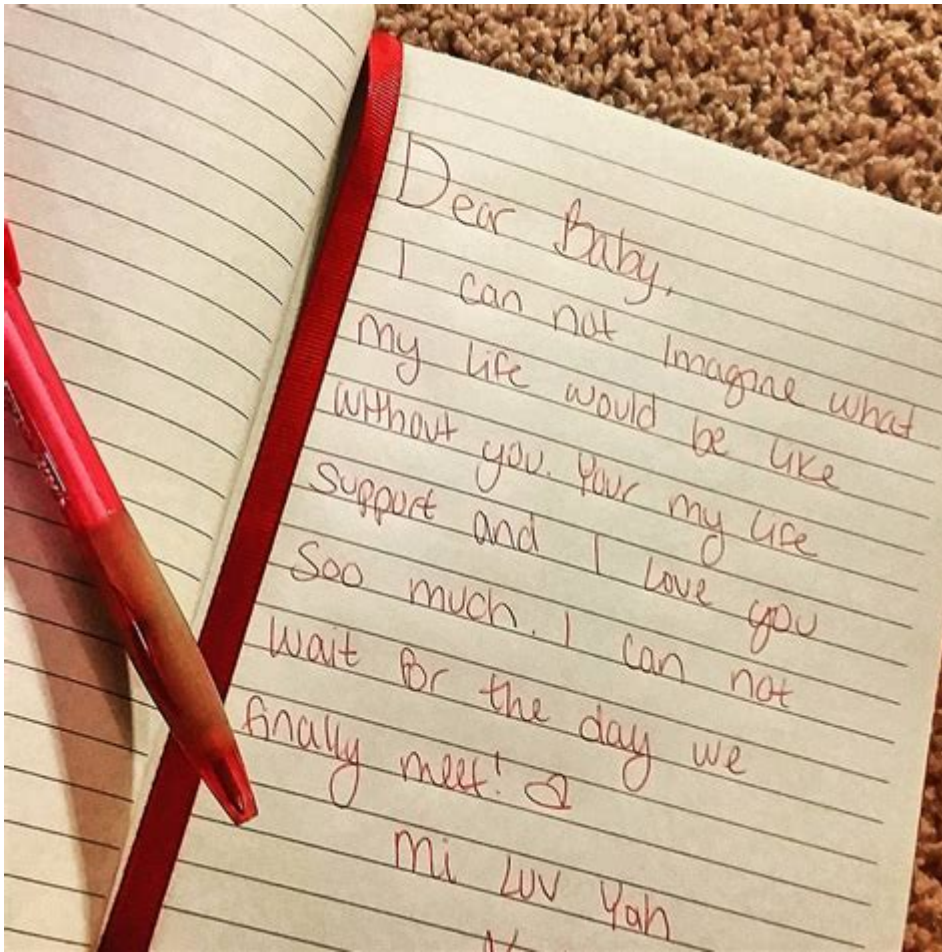 Dear Baby,
I can not Imagine what
my life would be like
without you. Your my life
support and I love you
Soo much. I can not
wait for the day we
finally meet!
Mi Luv Yah